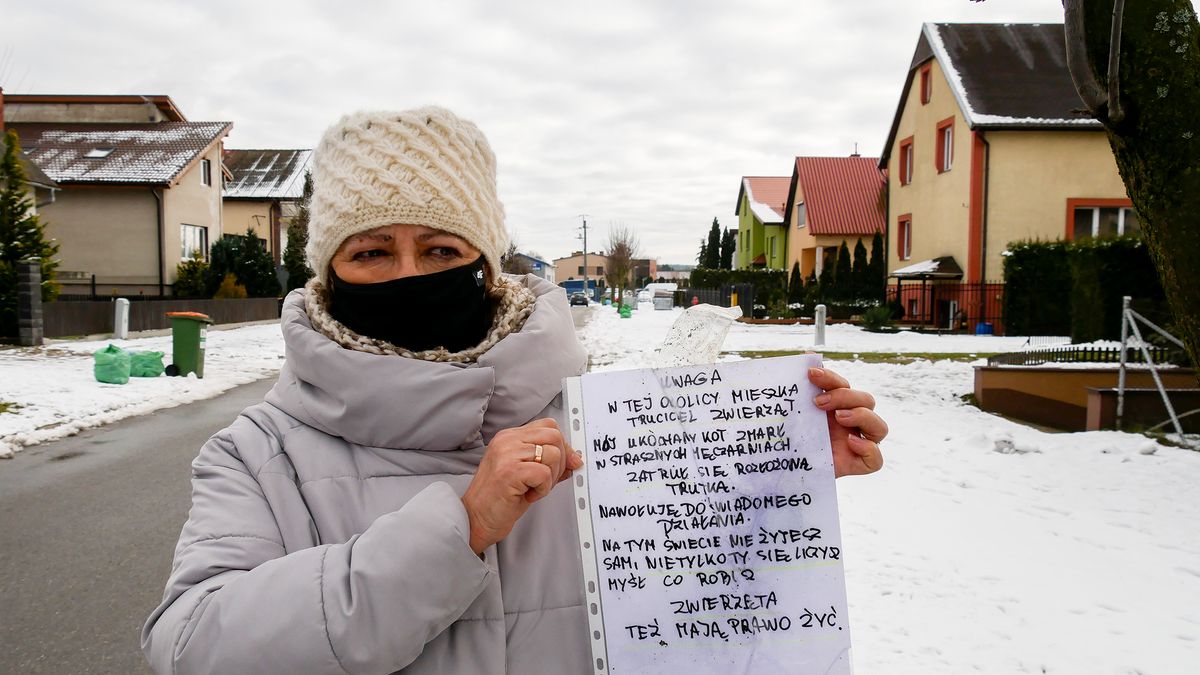 UWAGA
W TEJ OKOLICY MIESZKA
TRUCICIEL ZWIERZĄT.
MÓJ UKOCHANY KOT ZMARŁ
W STRASZNYCH MĘCZARNIACH.
ZATRUŁ SIĘ ROZŁOŻONĄ
TRUTKĄ.
NAWOŁUJĘ DO ŚWIADOMEGO
DZIAŁANIA.
NA TYM ŚWIECIE NIE ŻYJESZ
SAM, NIE TYLKO TY SIĘ LICZYSZ
MYŚL CO ROBISZ
ZWIERZĘTA
TEŻ MAJĄ PRAWO ŻYĆ.